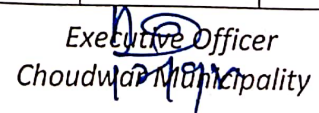 Executive Officer
Choudwar Municipality